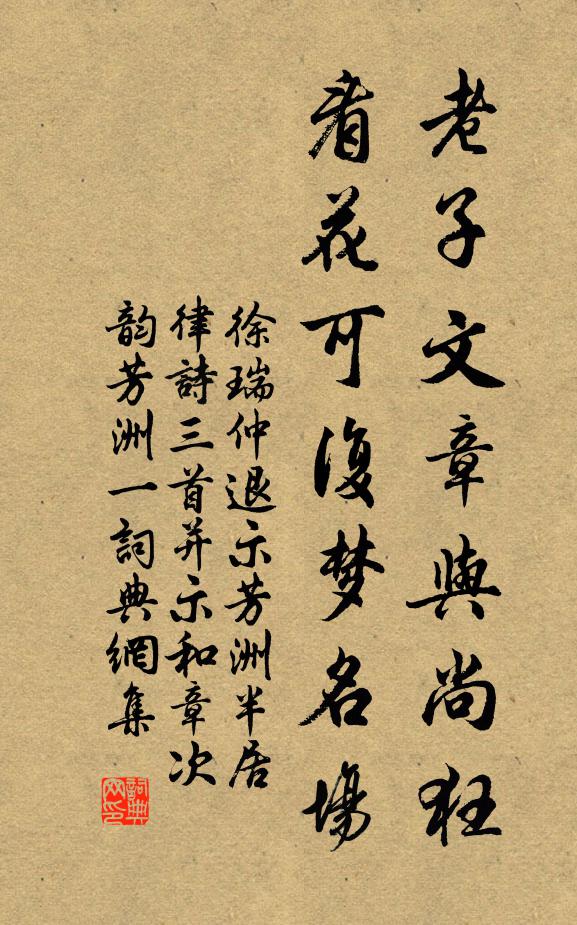 老子文章與尚狂
看花可復梦名場
徐瑞仲退示芳洲半居
律詩三首并示和章次
韵芳洲一詞典網集
詞典网印